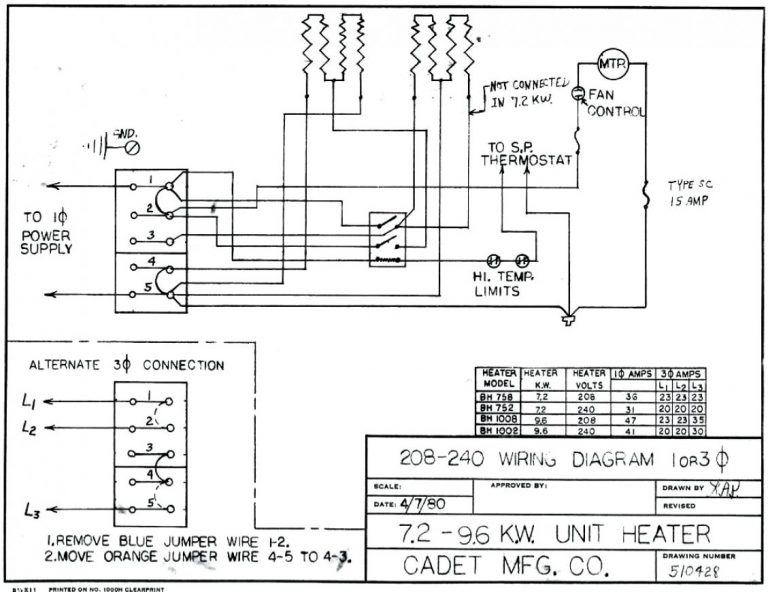 NOT CONNECTED
IN 7.2 K.W.
MTR.
FAN
CONTROL
GND.
TO S.P.
THERMOSTAT
TYPE SC
15 AMP
1
2
3
4
5
TO 1Φ
POWER
SUPPLY
HI. TEMP.
LIMITS
ALTERNATE 3Φ CONNECTION
L1
L2
L3
1
2
3
4
5
1. REMOVE BLUE JUMPER WIRE 1-2.
2. MOVE ORANGE JUMPER WIRE 4-5 TO 4-3.
HEATER MODEL HEATER K.W. HEATER VOLTS 1Φ AMPS 3Φ AMPS
L1 L2 L3
BH 758 7.2 208 36 23 23 23
BH 752 7.2 240 31 20 20 20
BH 1008 9.6 208 47 23 23 35
BH 1002 9.6 240 41 20 20 30
208-240 WIRING DIAGRAM 1 OR 3Φ
SCALE: APPROVED BY: DRAWN BY
DATE: 4/7/80 REVISED
7.2 - 9.6 K.W. UNIT HEATER
CADET MFG. CO.
DRAWING NUMBER
510428
8½X11 PRINTED ON NO. 1000H CLEARPRINT